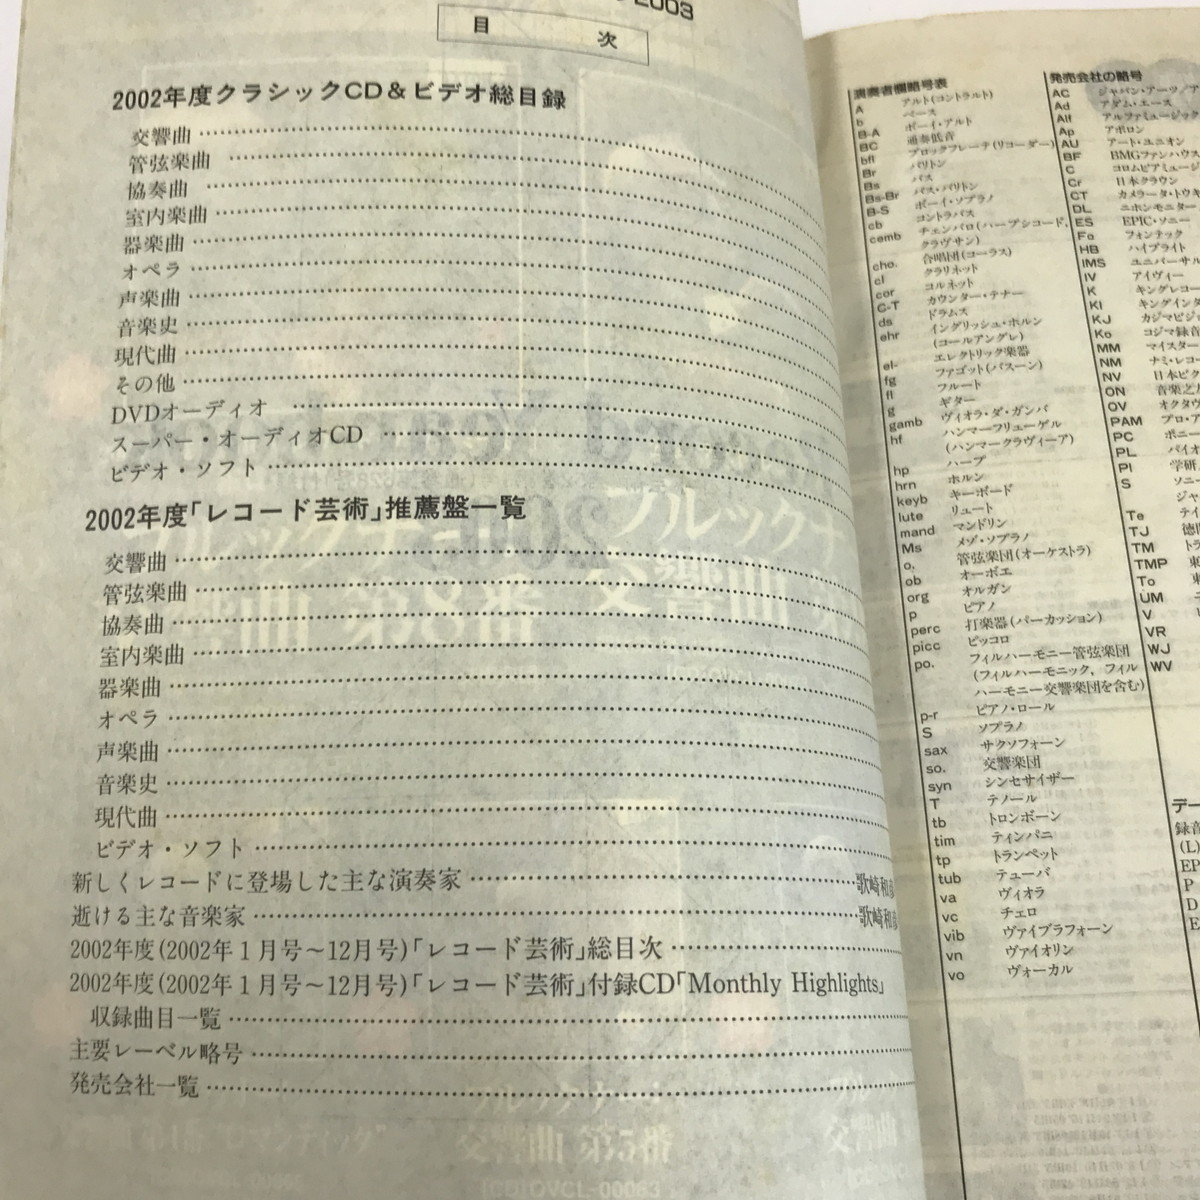 2003
目　次
2002年度クラシックCD＆ビデオ総目録
交響曲
管弦楽曲
協奏曲
室内楽曲
器楽曲
オペラ
声楽曲
音楽史
現代曲
その他
DVDオーディオ
スーパー・オーディオCD
ビデオ・ソフト
2002年度「レコード芸術」推薦盤一覧
交響曲
管弦楽曲
協奏曲
室内楽曲
器楽曲
オペラ
声楽曲
音楽史
現代曲
ビデオ・ソフト
新しくレコードに登場した主な演奏家 歌崎和彦
逝ける主な音楽家 歌崎和彦
2002年度(2002年1月号〜12月号)「レコード芸術」総目次
2002年度(2002年1月号〜12月号)「レコード芸術」付録CD「Monthly Highlights」
収録曲目一覧
主要レーベル略号
発売会社一覧
演奏者欄略号表
A アルト(コントラルト)
b ベース
B-A ボーイ・アルト
BC 通奏低音
bfl ブロックフレーテ(リコーダー)
Br バリトン
Bs バス
Bs-Br バス・バリトン
B-S ボーイ・ソプラノ
cb コントラバス
cemb チェンバロ(ハープシコード,
クラヴサン)
cho. 合唱団(コーラス)
cl クラリネット
cor コルネット
C-T カウンター・テナー
ds ドラムス
ehr イングリッシュ・ホルン
(コールアングレ)
el- エレクトリック楽器
fg ファゴット(バスーン)
fl フルート
g ギター
gamb ヴィオラ・ダ・ガンバ
hf ハンマーフリューゲル
(ハンマークラヴィーア)
hp ハープ
hrn ホルン
keyb キーボード
lute リュート
mand マンドリン
Ms メゾ・ソプラノ
o. 管弦楽団(オーケストラ)
ob オーボエ
org オルガン
p ピアノ
perc 打楽器(パーカッション)
picc ピッコロ
po. フィルハーモニー管弦楽団
(フィルハーモニック, フィル
ハーモニー交響楽団を含む)
p-r ピアノ・ロール
S ソプラノ
sax サクソフォーン
so. 交響楽団
syn シンセサイザー
T テノール
tb トロンボーン
tim ティンパニ
tp トランペット
tub テューバ
va ヴィオラ
vc チェロ
vib ヴァイブラフォーン
vn ヴァイオリン
vo ヴォーカル
発売会社の略号
AC ジャパン・アーツ/ア
Ad アダム・エース
Alf アルファミュージック
Ap アポロン
AU アート・ユニオン
BF BMGファンハウス
C コロムビアミュージ
Cr 日本クラウン
CT カメラータ・トウキ
DL ニホンモニター
ES EPIC・ソニー
Fo フォンテック
HB ハイブライト
IMS ユニバーサル
IV アイヴィー
K キングレコー
KI キングインタ
KJ カジマビジョ
Ko コジマ録音
MM マイスター
NM ナミ・レコー
NV 日本ビク
ON 音楽之友
OV オクタヴ
PAM プロ・ア
PC ポニー
PL パイオ
PI 学研
S ソニー
ジャ
Te テイ
TJ 徳間
TM トラ
TMP 東
To 東
UM ユ
V
VR
WJ
WV
デー
録音
(L)
EP
P
D
E
交響曲 第5番
[CD]OVCL-00063